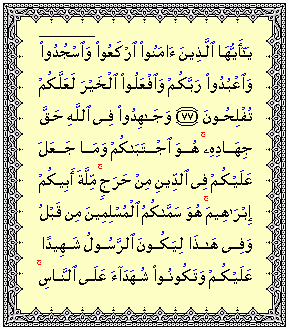 يَٰٓأَيُّهَا ٱلَّذِينَ ءَامَنُوا۟ ٱرْكَعُوا۟ وَٱسْجُدُوا۟
وَٱعْبُدُوا۟ رَبَّكُمْ وَٱفْعَلُوا۟ ٱلْخَيْرَ لَعَلَّكُمْ
تُفْلِحُونَ ﴿٧٧﴾ وَجَٰهِدُوا۟ فِى ٱللَّهِ حَقَّ
جِهَادِهِۦ ۚ هُوَ ٱجْتَبَىٰكُمْ وَمَا جَعَلَ
عَلَيْكُمْ فِى ٱلدِّينِ مِنْ حَرَجٍ ۚ مِّلَّةَ أَبِيكُمْ
إِبْرَٰهِيمَ ۚ هُوَ سَمَّىٰكُمُ ٱلْمُسْلِمِينَ مِن قَبْلُ
وَفِى هَٰذَا لِيَكُونَ ٱلرَّسُولُ شَهِيدًا
عَلَيْكُمْ وَتَكُونُوا۟ شُهَدَآءَ عَلَى ٱلنَّاسِ ۚ